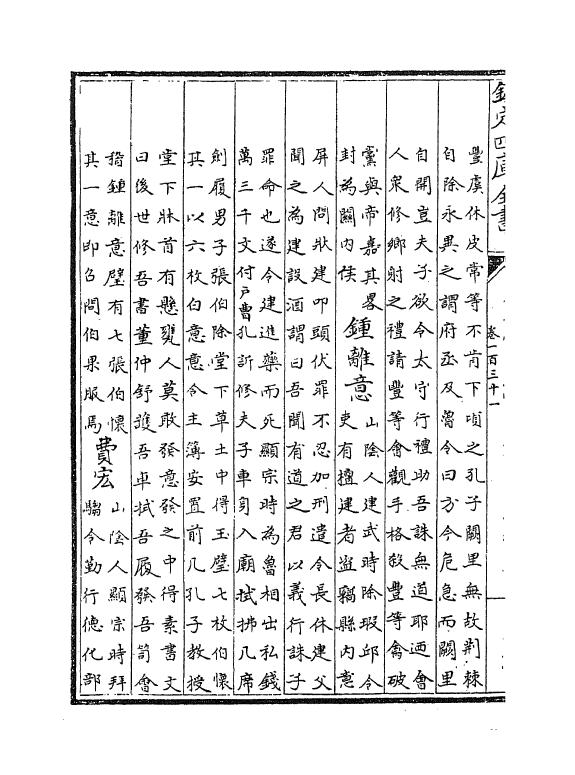 欽定四庫全書
卷一百三十一
豐虞休皮常等不肯下頃之孔子闕里無故荆棘
自除永異之謂府丞及魯令曰方今危急而闕里
自開豈夫子欲令太守行禮助吾誅無道耶迺會
人衆修鄉射之禮請豐等會觀手格殺豐等禽破
黨與帝嘉其畧
封為關内侯
鍾離意
山陰人建武時除瑕邱令
吏有檀建者盜竊縣内意
屏人問狀建叩頭伏罪不忍加刑遣令長休建父
聞之為建設酒謂曰吾聞有道之君以義行誅子
罪命也遂令建進藥而死顯宗時為魯相出私錢
萬三千文付户曹孔訢修夫子車身入廟拭拂几席
劍履男子張伯除堂下草土中得玉璧七枚伯懷
其一以六枚白意意令主簿安置前几孔子教授
堂下牀首有懸甕人莫敢發意發之中得素書文
曰後世修吾書董仲舒護吾車拭吾履發吾笥會
稽鍾離意璧有七張伯懷
其一意即召問伯果服焉
費宏
山陰人顯宗時拜
騶令勤行德化部